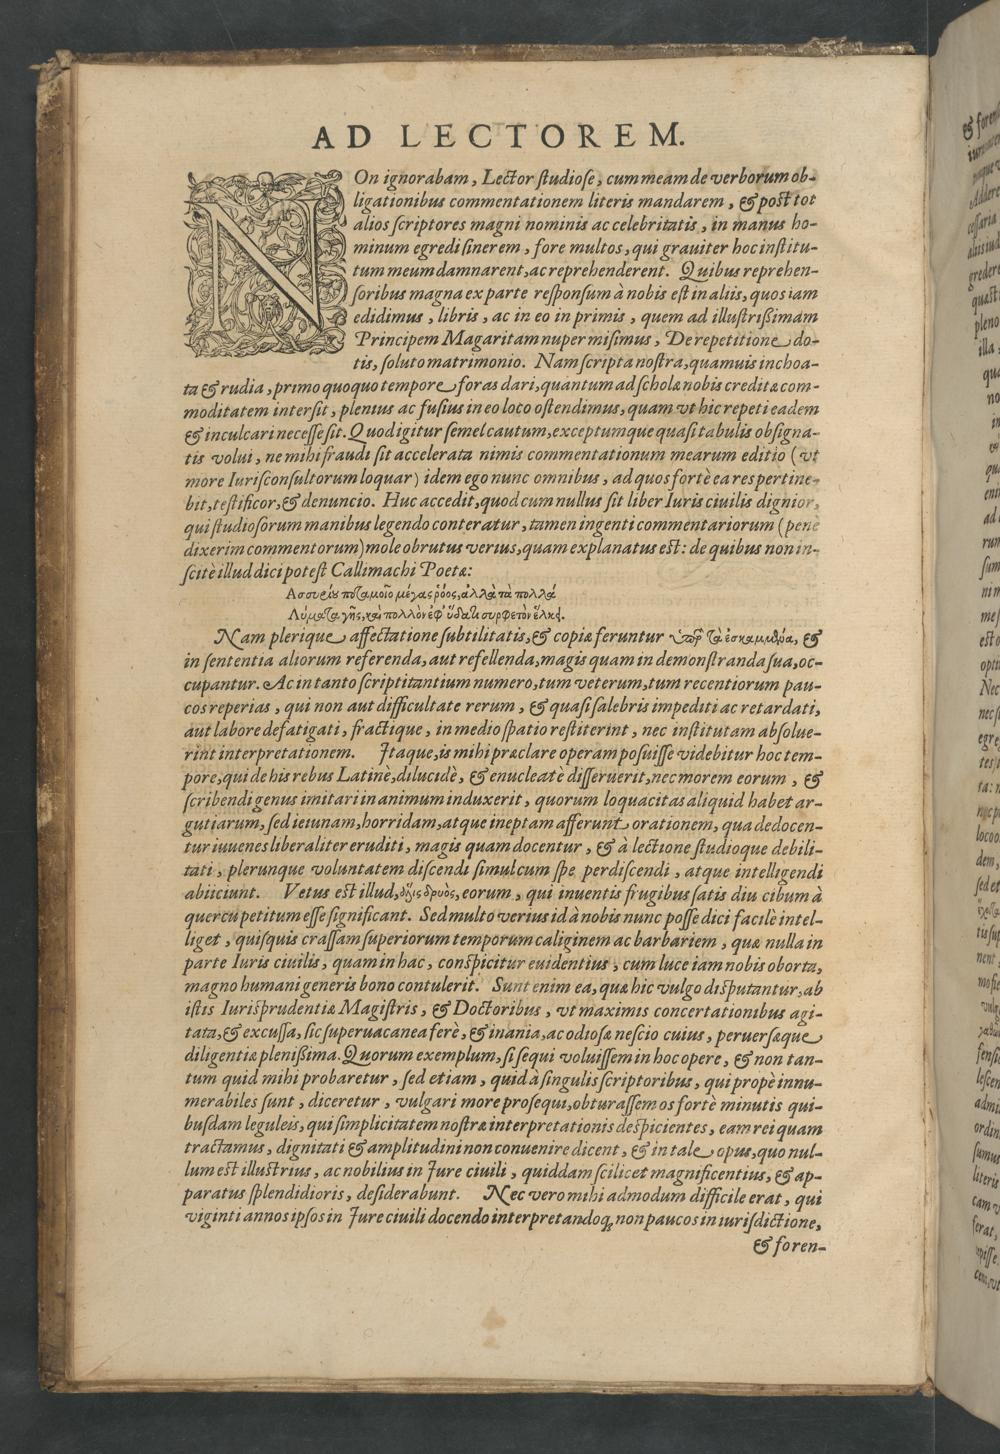 AD LECTOREM.
NOn ignorabam, Lector studiose, cum meam de verborum ob-
ligationibus commentationem literis mandarem, & post tot
alios scriptores magni nominis ac celebritatis, in manus ho-
minum egredi sinerem, fore multos, qui grauiter hoc institu-
tum meum damnarent, ac reprehenderent. Quibus reprehen-
soribus magna ex parte responsum à nobis est in aliis, quos iam
edidimus, libris, ac in eo in primis, quem ad illustrißimam
Principem Magaritam nuper misimus, De repetitione do-
tis, soluto matrimonio. Nam scripta nostra, quamuis inchoa-
ta & rudia, primo quoquo tempore foras dari, quantum ad scholæ nobis creditæ com-
moditatem intersit, plenius ac fusius in eo loco ostendimus, quam vt hic repeti eadem
& inculcari necesse sit. Quod igitur semel cautum, exceptumque quasi tabulis obsigna-
tis volui, ne mihi fraudi sit accelerata nimis commentationum mearum editio (vt
more Iurisconsultorum loquar) idem ego nunc omnibus, ad quos fortè ea res pertine-
bit, testificor, & denuncio. Huc accedit, quod cum nullus sit liber Iuris ciuilis dignior,
qui studiosorum manibus legendo conteratur, tamen ingenti commentariorum (penè
dixerim commentorum) mole obrutus verius, quam explanatus est: de quibus non in-
scitè illud dici potest Callimachi Poetæ:
Ασσυρίου ποταμοῖο μέγας ῥόος, ἀλλὰ τὰ πολλὰ
Λύματα γῆς, καὶ πολλὸν ἐφ' ὕδατι συρφετὸν ἕλκει.
Nam plerique affectatione subtilitatis, & copiæ feruntur ὑπὲρ τὰ ἐσκαμμένα, &
in sententia aliorum referenda, aut refellenda, magis quam in demonstranda sua, oc-
cupantur. Ac in tanto scriptitantium numero, tum veterum, tum recentiorum pau-
cos reperias, qui non aut difficultate rerum, & quasi salebris impediti ac retardati,
aut labore defatigati, fractique, in medio spatio restiterint, nec institutam absolue-
rint interpretationem. Itaque, is mihi præclare operam posuisse videbitur hoc tem-
pore, qui de his rebus Latinè, dilucidè, & enucleatè disseruerit, nec morem eorum, &
scribendi genus imitari in animum induxerit, quorum loquacitas aliquid habet ar-
gutiarum, sed ieiunam, horridam, atque ineptam afferunt orationem, qua dedocen-
tur iuuenes liberaliter eruditi, magis quam docentur, & à lectione studioque debili-
tati, plerunque voluntatem discendi simul cum spe perdiscendi, atque intelligendi
abiiciunt. Vetus est illud, ἅλις δρυὸς, eorum, qui inuentis frugibus satis diu cibum à
quercu petitum esse significant. Sed multo verius id à nobis nunc posse dici facilè intel-
liget, quisquis crassam superiorum temporum caliginem ac barbariem, quæ nulla in
parte Iuris ciuilis, quam in hac, conspicitur euidentius, cum luce iam nobis oborta,
magno humani generis bono contulerit. Sunt enim ea, quæ hic vulgo disputantur, ab
istis Iurisprudentiæ Magistris, & Doctoribus, vt maximis concertationibus agi-
tata, & excussa, sic superuacanea ferè, & inania, ac odiosæ nescio cuius, peruersæque
diligentiæ plenißima. Quorum exemplum, si sequi voluissem in hoc opere, & non tan-
tum quid mihi probaretur, sed etiam, quid à singulis scriptoribus, qui propè innu-
merabiles sunt, diceretur, vulgari more prosequi, obturassem os fortè minutis qui-
busdam leguleis, qui simplicitatem nostræ interpretationis despicientes, eam rei quam
tractamus, dignitati & amplitudini non conuenire dicent, & in tale opus, quo nul-
lum est illustrius, ac nobilius in Iure ciuili, quiddam scilicet magnificentius, & ap-
paratus splendidioris, desiderabunt. Nec vero mihi admodum difficile erat, qui
viginti annos ipsos in Iure ciuili docendo interpretandoq; non paucos in iurisdictione,
& foren-